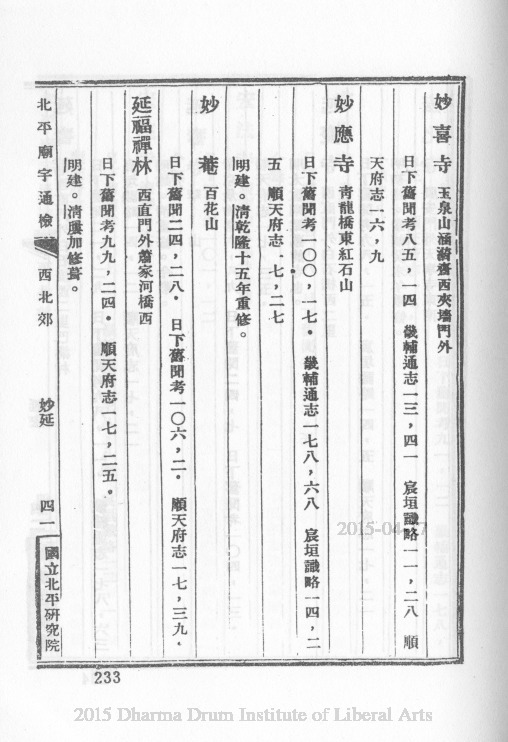 妙喜寺 玉泉山涵漪齋西夾墻門外
日下舊聞考八五，一四 畿輔通志一三，四一 宸垣識略一一，二八 順
天府志一六，九
妙應寺 青龍橋東紅石山
日下舊聞考一〇〇，一七。 畿輔通志一七八，六八 宸垣識略一四，二
五 順天府志一七，二七
明建。清乾隆十五年重修。
妙菴 百花山
日下舊聞二四，二八。 日下舊聞考一〇六，二。 順天府志一七，三九．
延福禪林 西直門外蕭家河橋西
日下舊聞考九九，二四。 順天府志一七，二五。
明建。清屢加修葺。
北平廟宇通檢 西北郊 妙延 四一 國立北平研究院
233
2015-04-27
2015 Dharma Drum Institute of Liberal Arts